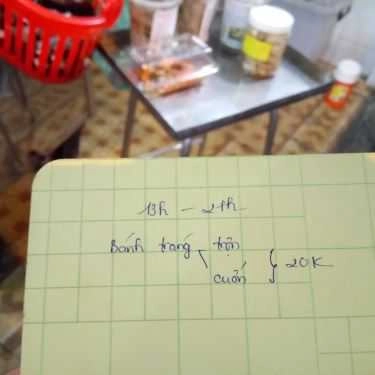 13h - 21h
Bánh tráng trộn
cuốn } 20K